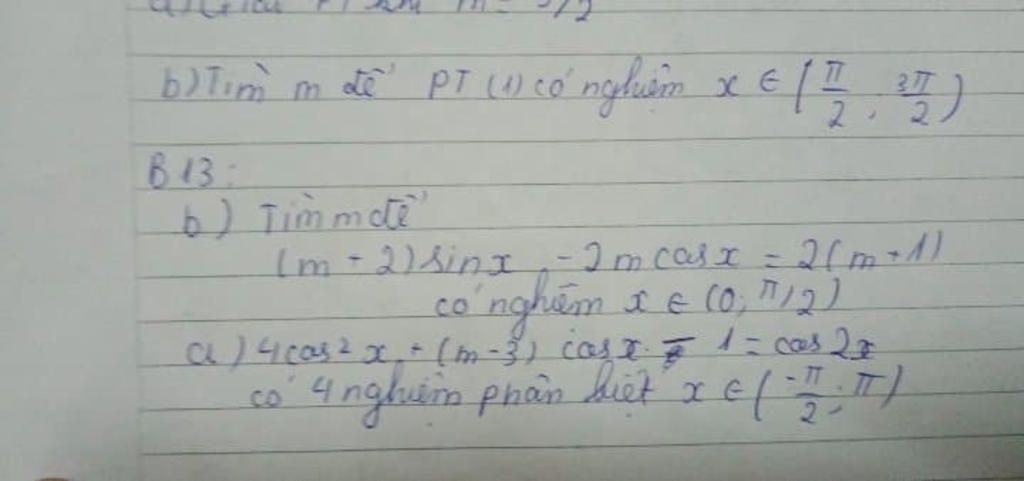 b) Tìm m để PT (1) có nghiệm x ∈ (π/2, 3π/2)
B13:
b) Tìm m để
(m + 2) sin x - 2m cos x = 2(m + 1)
có nghiệm x ∈ (0; π/2)
a) 4cos² x + (m - 3) cos x - 1 = cos 2x
có 4 nghiệm phân biệt x ∈ (-π/2; π)